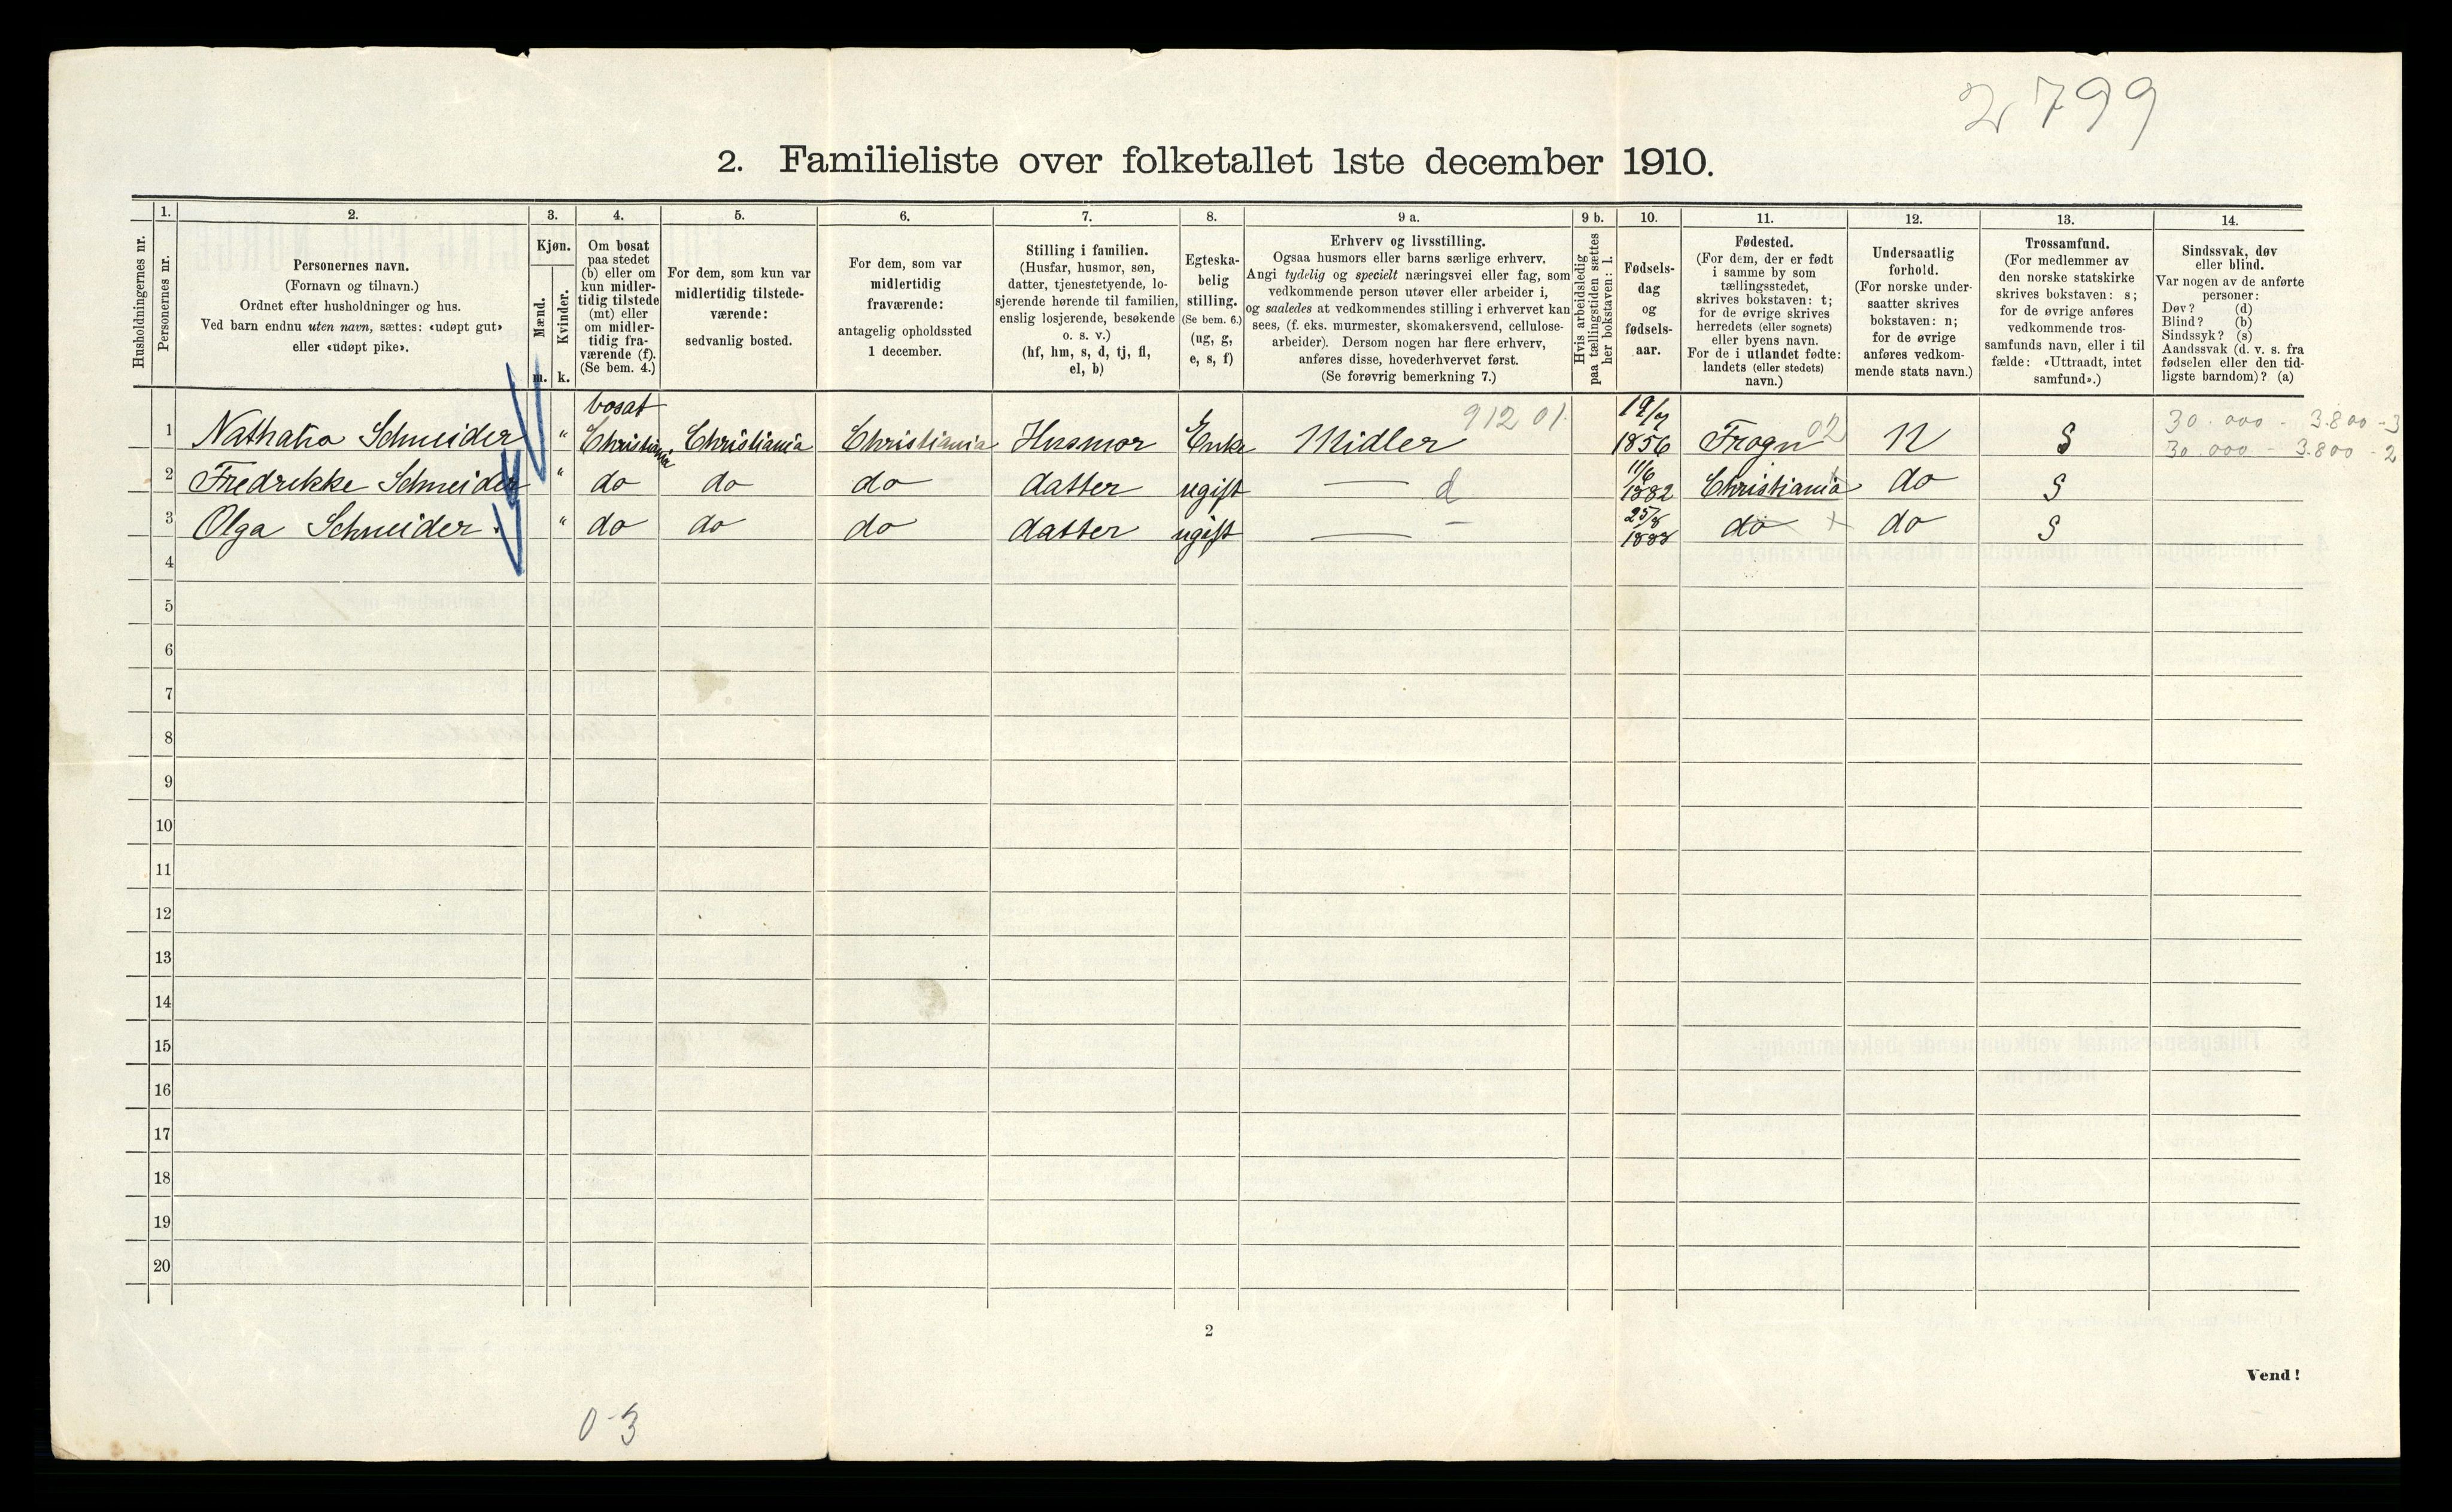 2799
2. Familieliste over folketallet 1ste december 1910.
Husholdningernes nr.
1. Personernes nr.
2. Personernes navn.
(Fornavn og tilnavn.)
Ordnet efter husholdninger og hus.
Ved barn endnu uten navn, sættes: «udøpt gut»
eller «udøpt pike».
3. Kjøn.
Mænd. m.
Kvinder. k.
4. Om bosat
paa stedet
(b) eller om
kun midler-
tidig tilstede
(mt) eller
om midler-
tidig fra-
værende (f).
(Se bem. 4.)
5. For dem, som kun var
midlertidig tilstede-
værende:
sedvanlig bosted.
6. For dem, som var
midlertidig
fraværende:
antagelig opholdssted
1 december.
7. Stilling i familien.
(Husfar, husmor, søn,
datter, tjenestetyende, lo-
sjerende hørende til familien,
enslig losjerende, besøkende
o. s. v.)
(hf, hm, s, d, tj, fl,
el, b)
8. Egteska-
belig
stilling.
(Se bem. 6.)
(ug, g,
e, s, f)
9 a. Erhverv og livsstilling.
Ogsaa husmors eller barns særlige erhverv.
Angi tydelig og specielt næringsvei eller fag, som
vedkommende person utøver eller arbeider i,
og saaledes at vedkommendes stilling i erhvervet kan
sees, (f. eks. murmester, skomakersvend, cellulose-
arbeider). Dersom nogen har flere erhverv,
anføres disse, hovederhvervet først.
(Se forøvrig bemerkning 7.)
9 b. Hvis arbeidsledig
paa tællingstiden sættes
her bokstaven: l.
10. Fødsels-
dag
og
fødsels-
aar.
11. Fødested.
(For dem, der er født
i samme by som
tællingsstedet,
skrives bokstaven: t;
for de øvrige skrives
herredets (eller sognets)
eller byens navn.
For de i utlandet fødte:
landets (eller stedets)
navn.)
12. Undersaatlig
forhold.
(For norske under-
saatter skrives
bokstaven: n;
for de øvrige
anføres vedkom-
mende stats navn.)
13. Trossamfund.
(For medlemmer av
den norske statskirke
skrives bokstaven: s;
for de øvrige anføres
vedkommende tros-
samfunds navn, eller i til
fælde: «Uttraadt, intet
samfund».)
14. Sindssvak, døv
eller blind.
Var nogen av de anførte
personer:
Døv? (d)
Blind? (b)
Sindssyk? (s)
Aandssvak (d. v. s. fra
fødselen eller den tid-
ligste barndom)? (a)
1 Nathalia Schneider " bosat Christiania Christiania Christiania Husmor Enke Midler 912 01. 19/7 1856 Frogn 02 N S 30.000 - 3.800 - 3
30.000 - 3.800 - 2
2 Fredrikke Schneider " do do do datter ugift — d 11/6 1882 Christiania do S
3 Olga Schneider. " do do do datter ugift — 25/8 1888 do do S
4
5
6
7
8
9
10
11
12
13
14
15
16
17
18
19
20
2
Vend!
0-3